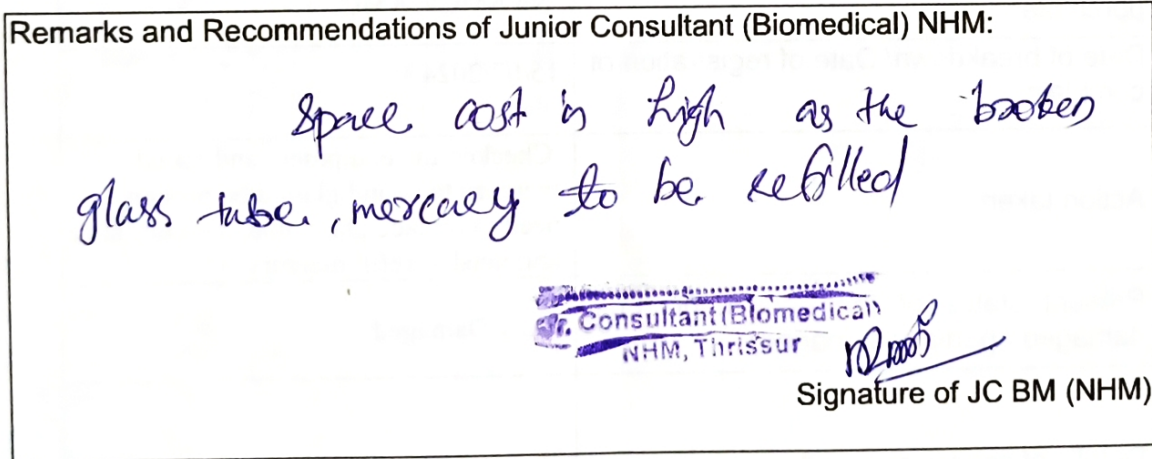 Remarks and Recommendations of Junior Consultant (Biomedical) NHM:
Spare cost is high as the broken
glass tube, mercury to be refilled
Jr. Consultant (Biomedical)
NHM, Thrissur
Signature of JC BM (NHM)